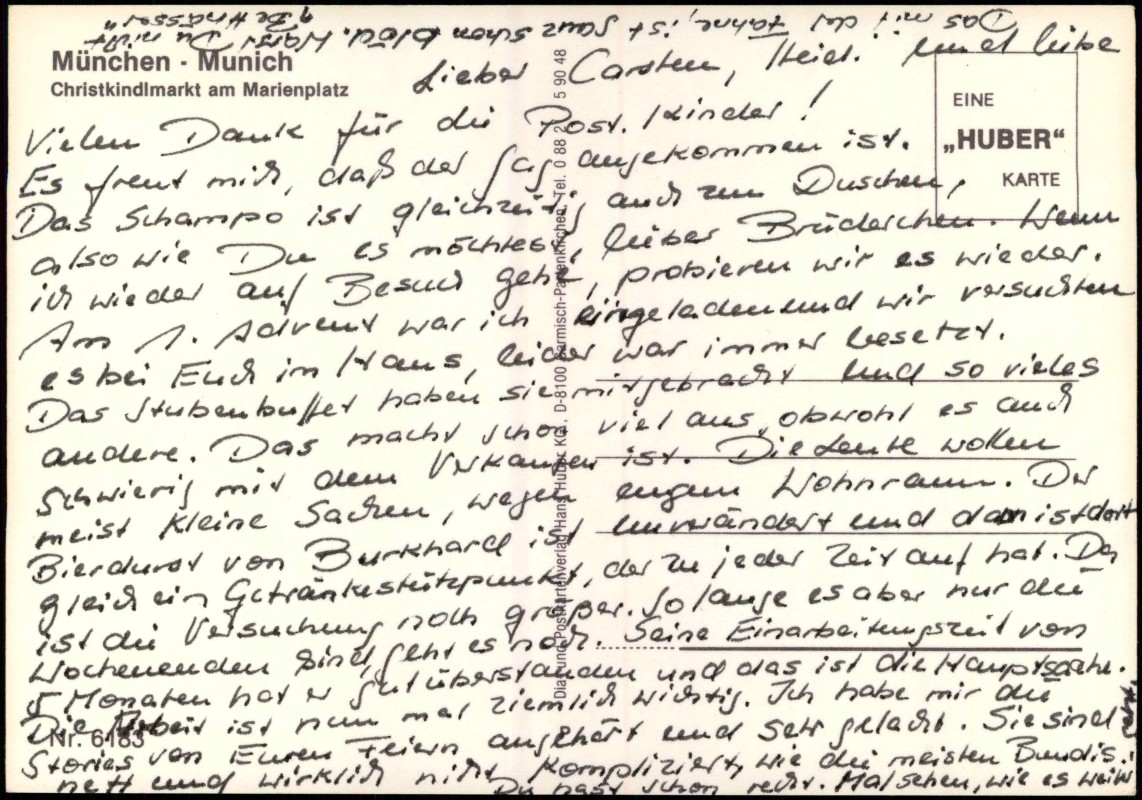 München · Munich
Christkindlmarkt am Marienplatz
EINE
„HUBER“
KARTE
Lieber Carsten, Heidi und liebe
Vielen Dank für die Post. Kinder!
Es freut mich, daß der angekommen ist.
Das Schampo ist gleichzeitig auch zum Duschen,
also wie Du es möchtest, lieber Brüderchen. Wenn
ich wieder auf Besuch gehe, probieren wir es wieder.
Am 1. Advent war ich eingeladen und wir versuchten
es bei Euch im Haus, leider war immer besetzt.
Das Stubenbuffet haben sie mitgebracht und so vieles
andere. Das macht schon viel aus, obwohl es auch
schwierig mit dem Verkaufen ist. Die Leute wollen
meist kleine Sachen, wegen engem Wohnraum. Der
Bierdurst von Burkhard ist unverändert und dann ist dort
gleich ein Getränkestützpunkt, der zu jeder Zeit auf hat. Da
ist die Versuchung noch größer. Solange es aber nur die
Wochenenden sind, geht es noch. Seine Einarbeitungszeit von
5 Monaten hat er gut überstanden und das ist die Hauptsache.
Die Arbeit ist nun mal ziemlich wichtig. Ich habe mir die
Stories von Euren Feiern angehört und sehr gelacht. Sie sind
nett und wirklich nicht kompliziert, wie die meisten Bundis.
Du hast schon recht. Mal sehen, wie es weiter
Das mit der Zahne, ist ganz schön blöd. Warst Du nicht
Nr. 6183
Dia- und Postkartenverlag Hans Huber KG, D-8100 Garmisch-Partenkirchen, Tel. 0 88 2 5 90 48